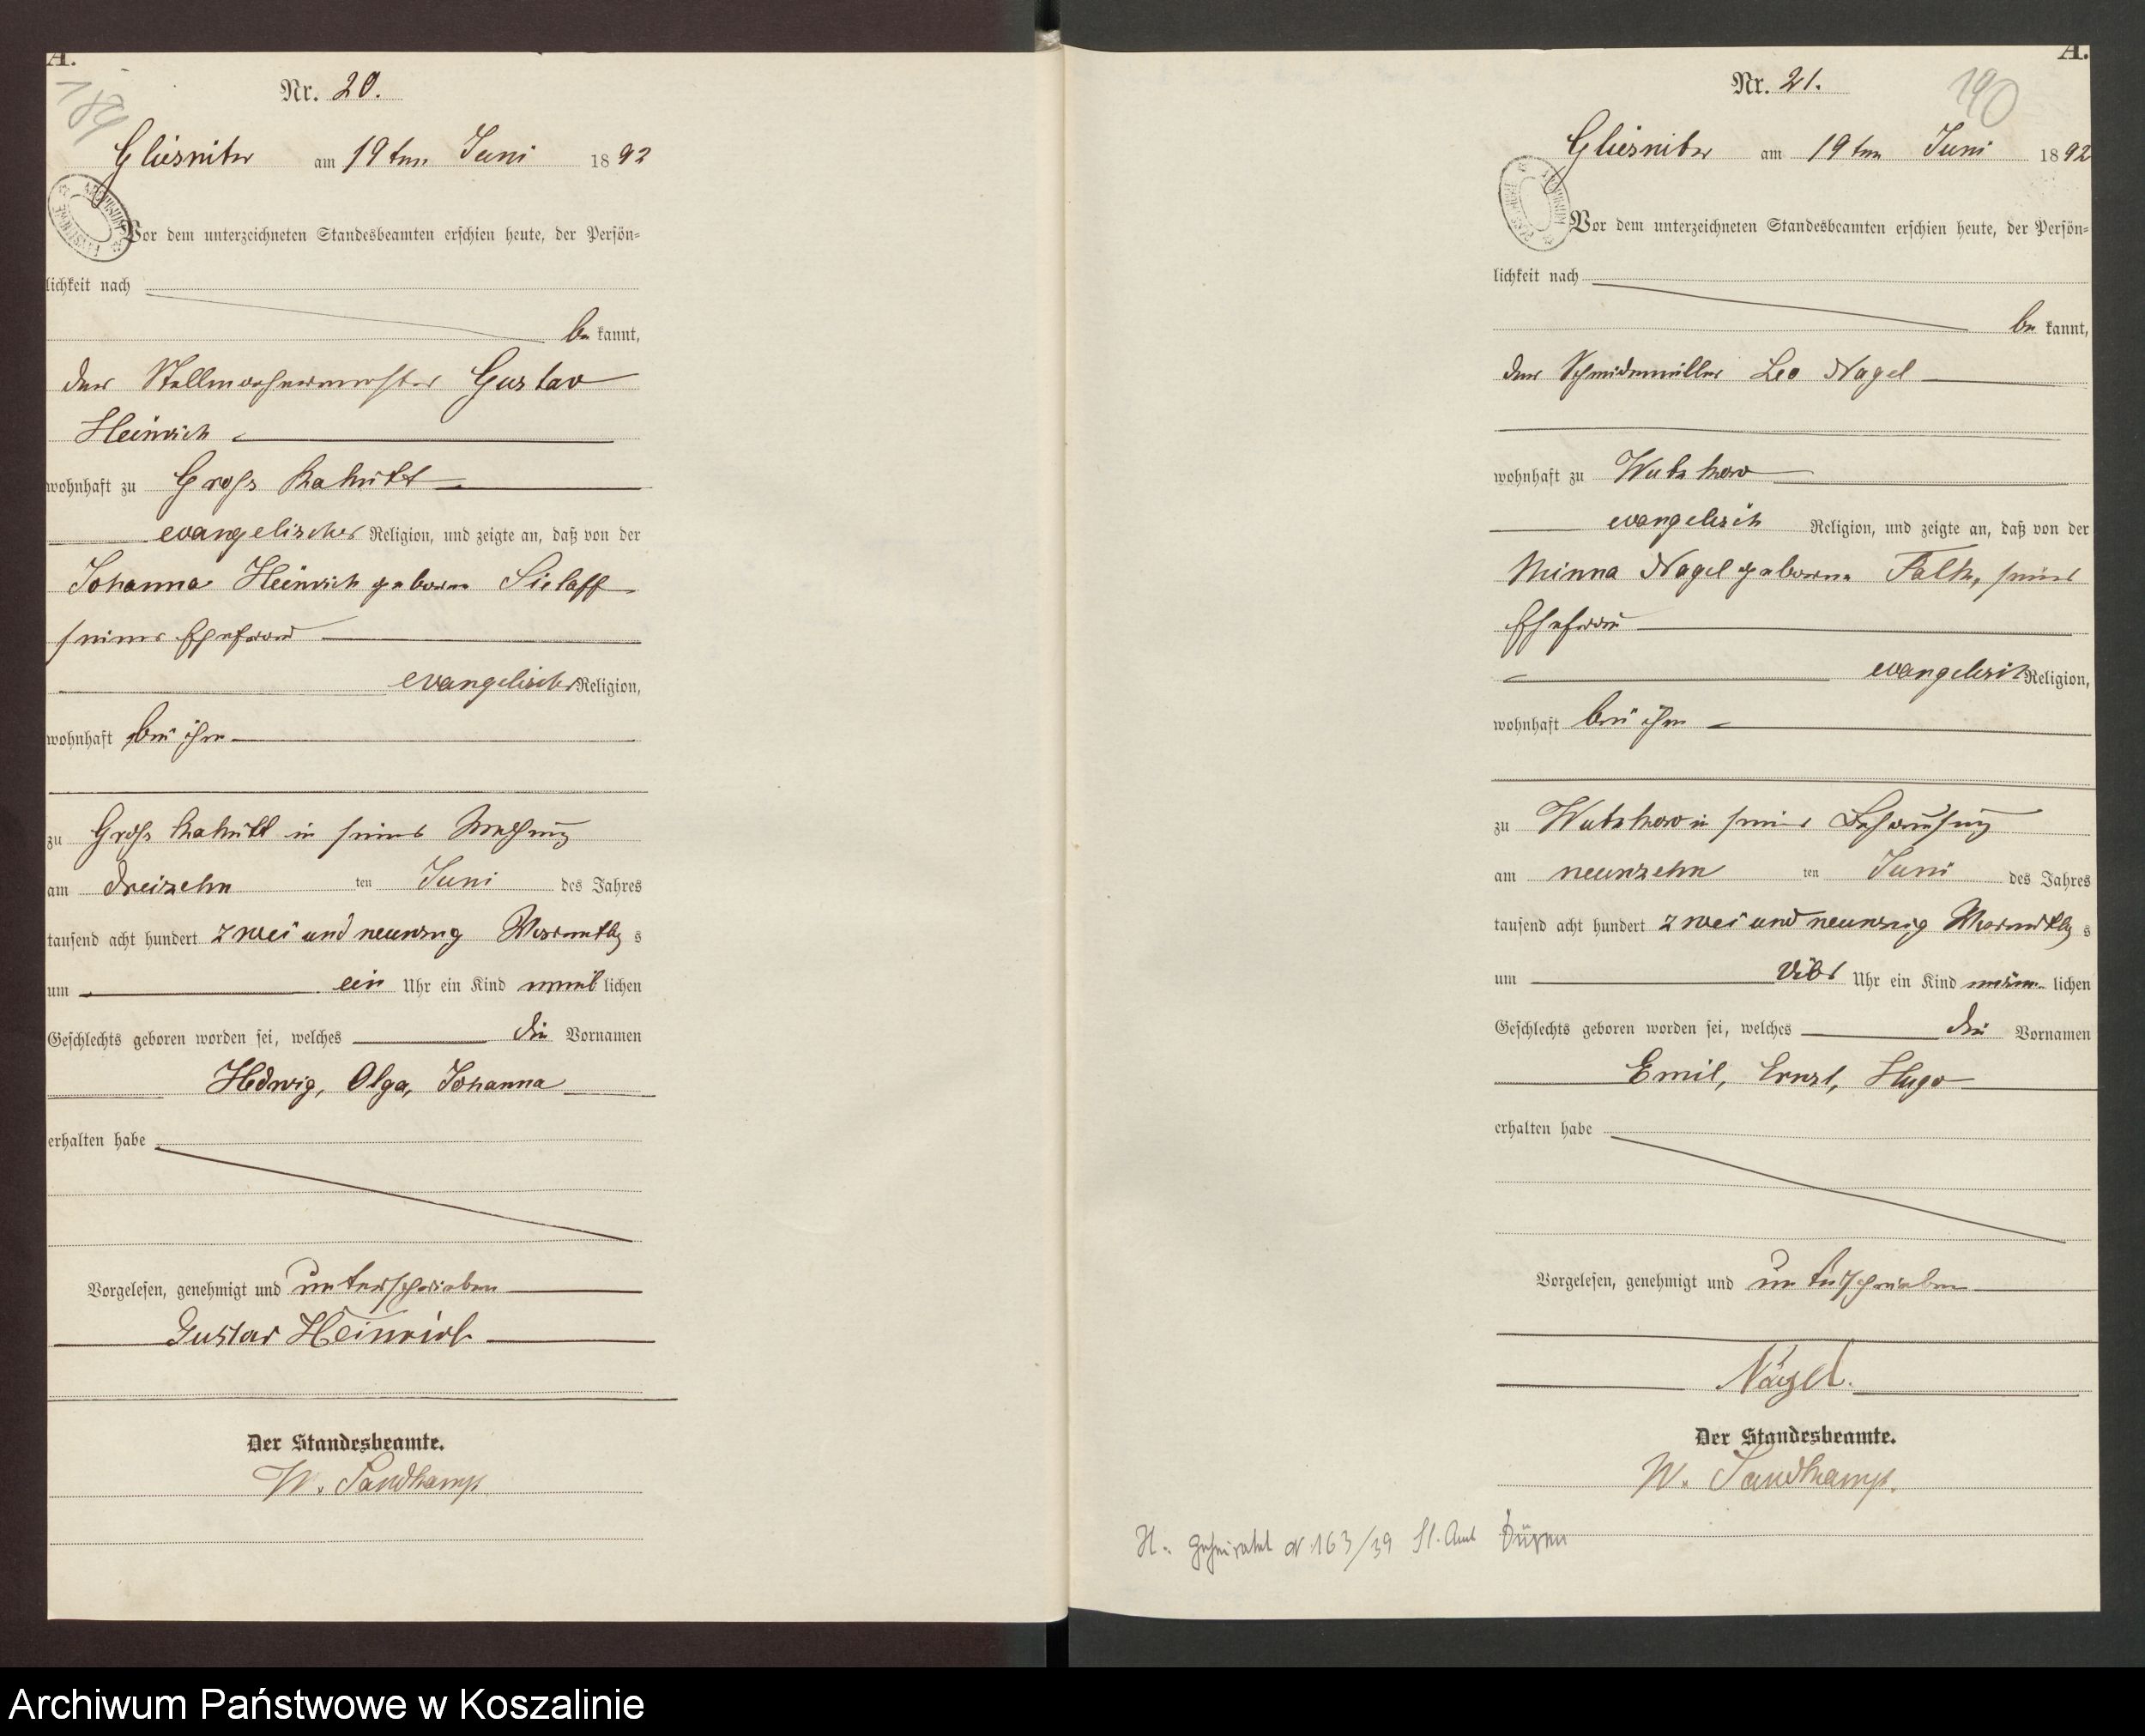 A.
189
Nr. 20.
Gliesnitz am 19ten Juni 1892
Vor dem unterzeichneten Standesbeamten erschien heute, der Persön-
lichkeit nach
be kannt,
der Stellmachermeister Gustav
Heinrich
wohnhaft zu Groß Rakitt
evangelischer Religion, und zeigte an, daß von der
Johanna Heinrich geborne Sielaff
seiner Ehefrau
evangelischer Religion,
wohnhaft bei ihm
zu Groß Rakitt in seiner Wohnung
am dreizehn ten Juni des Jahres
tausend acht hundert zwei und neunzig Vormittags
um ein Uhr ein Kind weiblichen
Geschlechts geboren worden sei, welches die Vornamen
Hedwig, Olga, Johanna
erhalten habe
Vorgelesen, genehmigt und unterschrieben
Gustav Heinrich
Der Standesbeamte.
W. Sandkamp
A.
190
Nr. 21.
Gliesnitz am 19ten Juni 1892
Vor dem unterzeichneten Standesbeamten erschien heute, der Persön-
lichkeit nach
be kannt,
der Schneidemüller Leo Nagel
wohnhaft zu Wutzkow
evangelisch Religion, und zeigte an, daß von der
Minna Nagel geborne Falk, seiner
Ehefrau
evangelisch Religion,
wohnhaft bei ihm
zu Wutzkow in seiner Behausung
am neunzehn ten Juni des Jahres
tausend acht hundert zwei und neunzig Vormittags
um Uhr ein Kind männlichen
Geschlechts geboren worden sei, welches die Vornamen
Emil, Ernst, Hugo
erhalten habe
Vorgelesen, genehmigt und unterschrieben
Nagel.
Der Standesbeamte.
W. Sandkamp.
H.: geheiratet N 163/39 St. Amt Düren
Archiwum Państwowe w Koszalinie